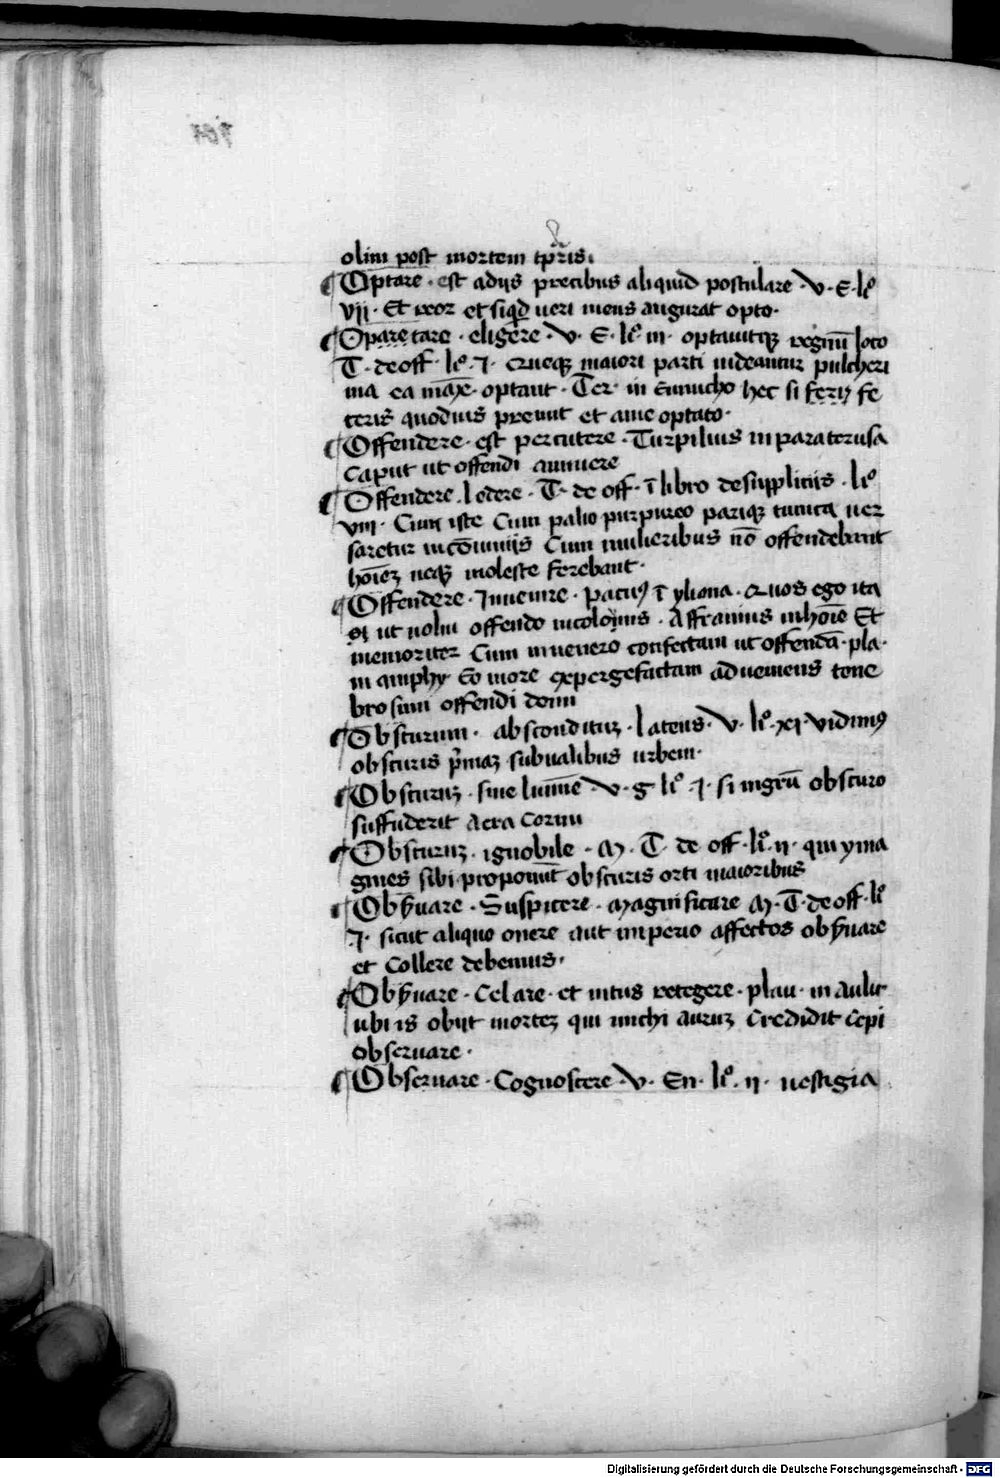 olim post mortem tp̄ris.
Optare · est adijs precibus aliquid postulare · V · E · liº
vij · Et reor et siqd̄ ueri mens augurat opto ·
Optare · eligere · V · E · liº · iij · optauitqꝫ regnū loco
T · de off · liº · I · queqꝫ maiori parti uideantur pulcheri
ma ea maxē optant · Ter · in Eunucho hec si
ceris quoduis premit et aue optato ·
Offendere · est percutere · Turpilius in paraterusa
Caput ut offendi
Offendere . Ledere · T · de off · ī libro desuppliciis · liº
viii · Cum iste Cum palio purpureo pariqꝫ tunica uer
saretur inconuiuijs Cum mulieribus nō offendebant
hoīeꝫ neqꝫ moleste ferebant ·
Offendere · Inuenire · ī yliona · Quos ego ita
ut uolui offendo incolomis · Affranius inhoīe Et
memoriter Cum inuenero confectam ut offendā · pla ·
in amphy · Eo more expergefactam adueniens tone
bro sum offendi domi
Obscurum · absconditur · Latens · V · liº · xi · vidimꝰ
obscuris p̄maꝫ subualibus urbem ·
Obscuruꝫ · sine lumīe · V · G liº · I · si nigrū obscuro
suffuderit aera Cornu
Obscuruꝫ · ignobile · M · T · de off · liº · ii · qui yma
gines sibi proponūt obscuris orti maioribus
Obẜuare · Suspicere · Magnificare M · T · de off · liº
I · sicut aliquo onere aut imperio affectos obẜuare
et Collere debemus ·
Obẜuare · Celare · et intus retegere · plau · in aulu
ubi is obijt morteꝫ qui michi auruꝫ Credidit Cepi
observare ·
Observare · Cognoscere · V · En · liº · ii · uestigia
Digitalisierung gefördert durch die Deutsche Forschungsgemeinschaft - DFG